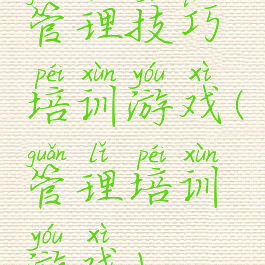 管理技巧
péi xùn yóu xì
培训游戏(
guǎn lǐ péi xùn
管理培训
yóu xì
游戏)